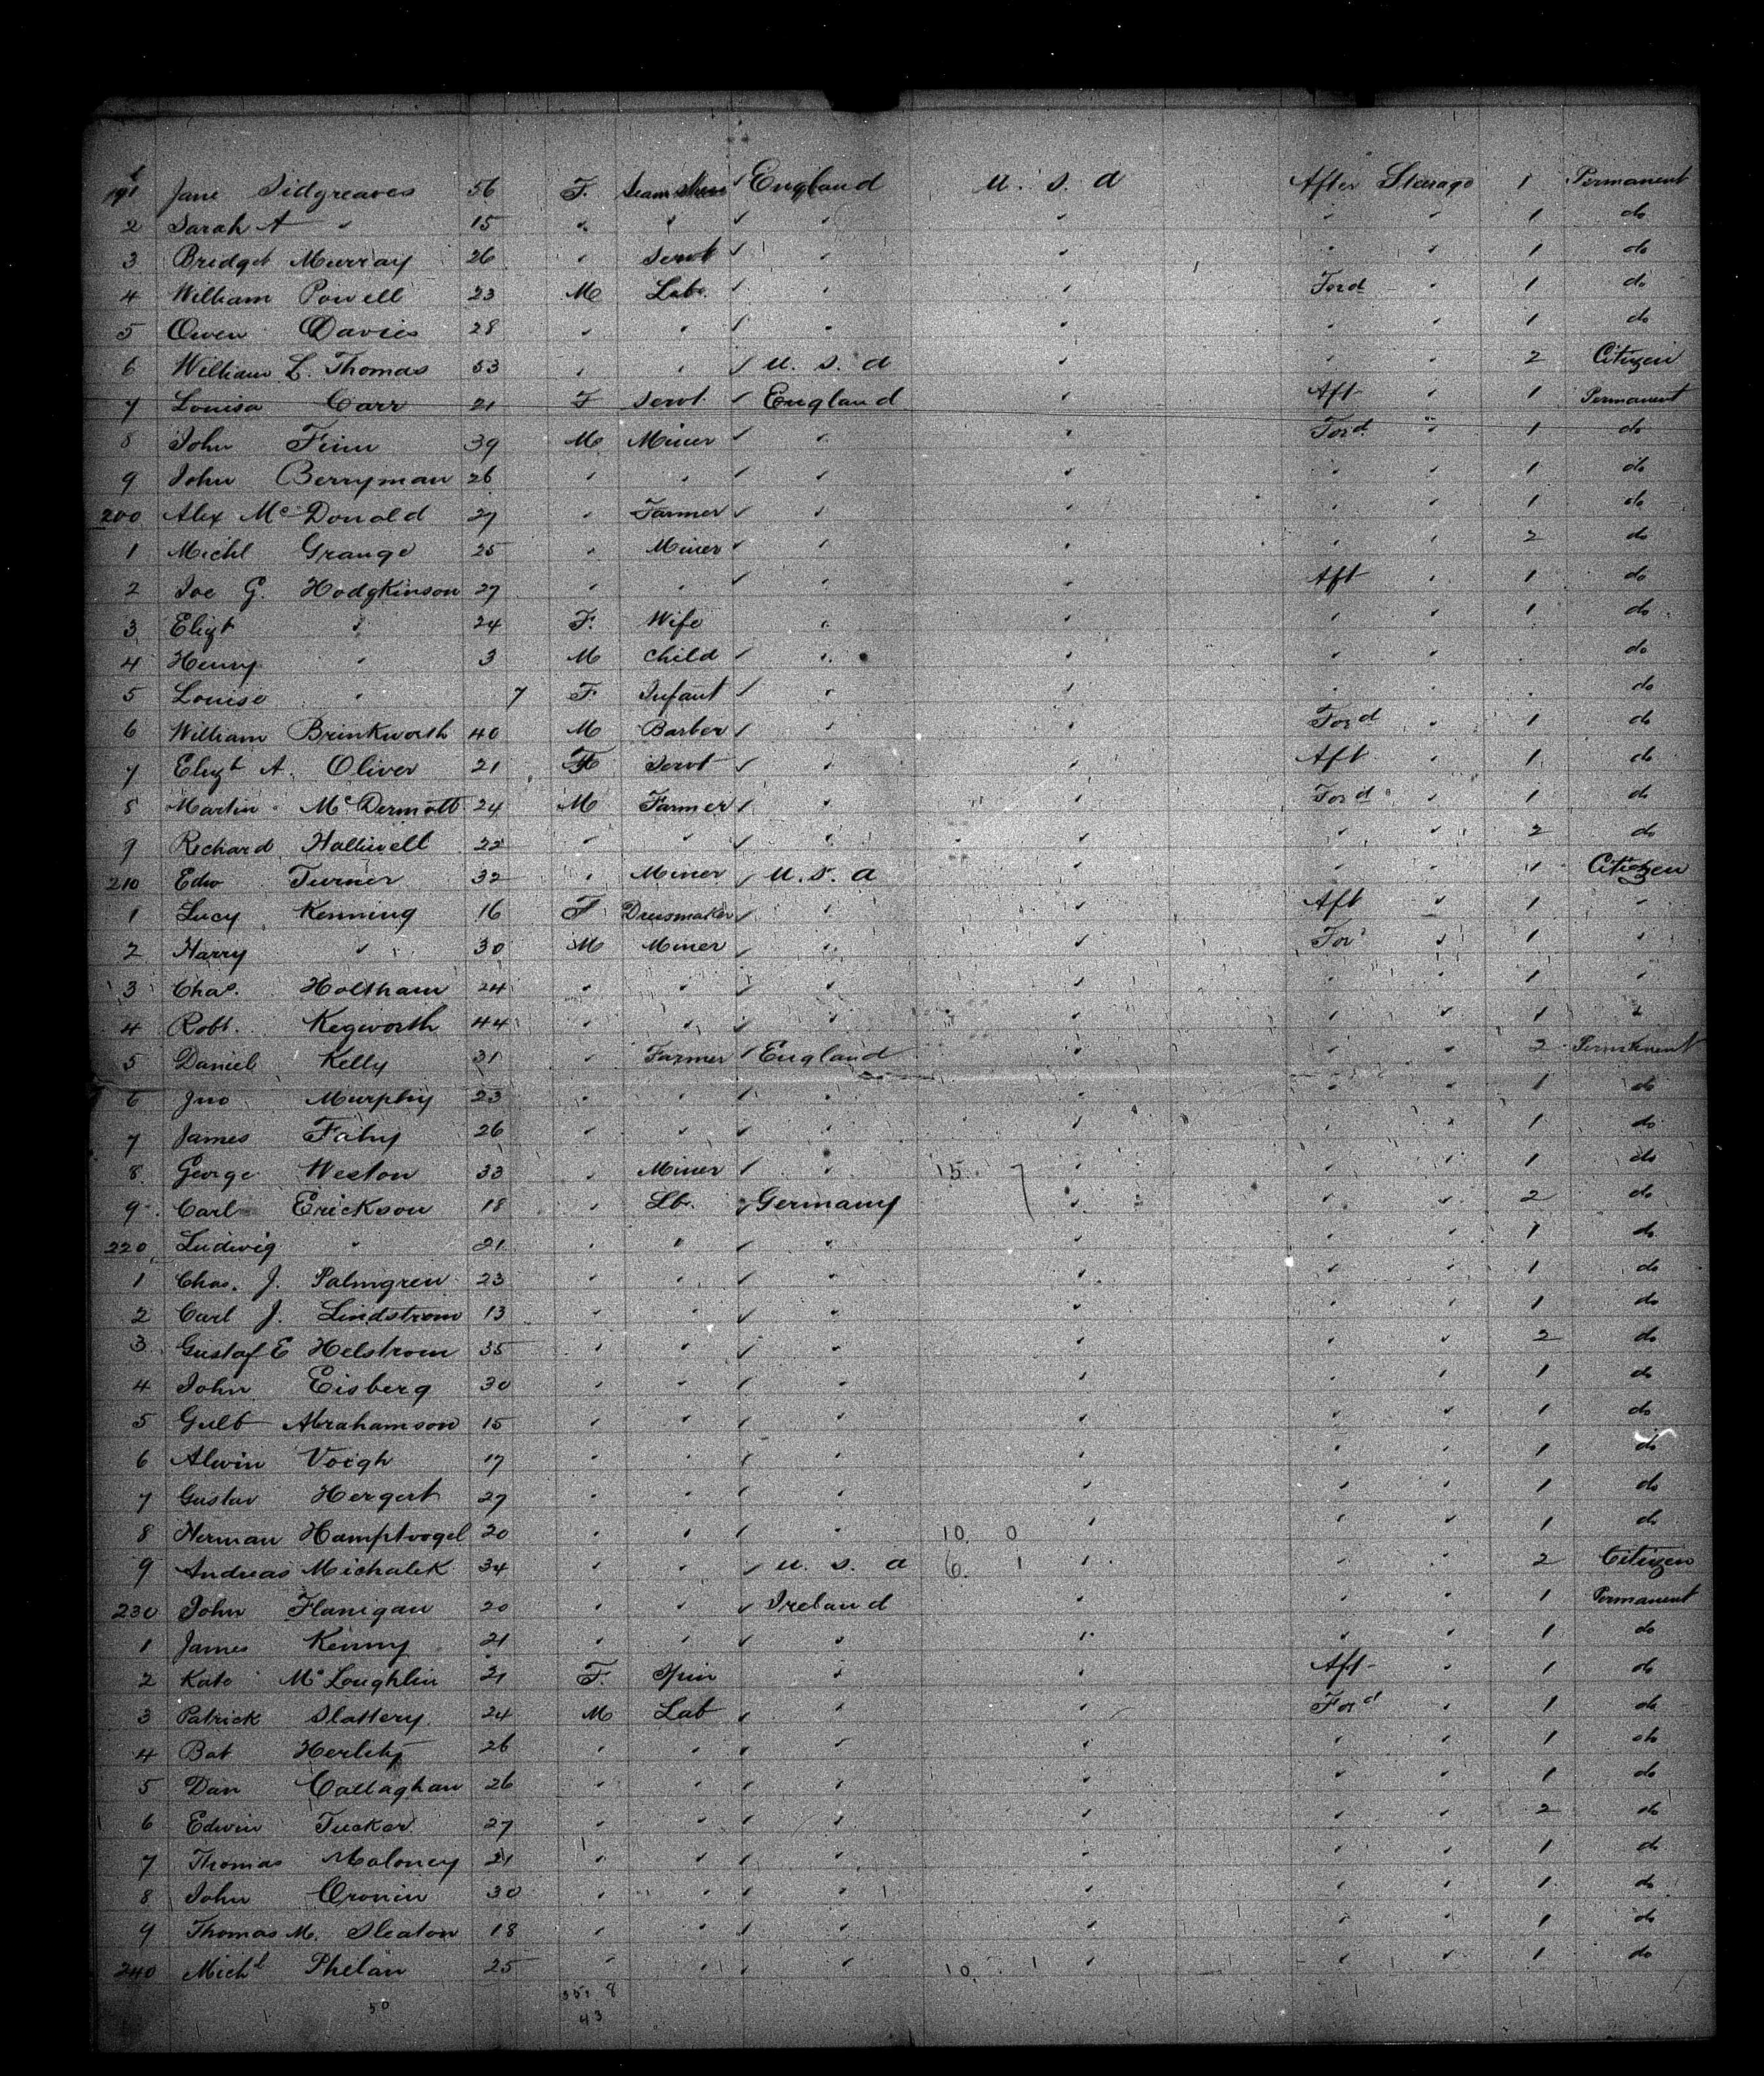 191 Jane Sidgreaves 56 F. Seamstress ✓ England U. S. A After Steerage 1 Permanent
2 Sarah A " 15 " " ✓ " " " " 1 do
3 Bridget Murray 26 " Servt ✓ " " " " 1 do
4 William Powell 23 M Lab. ✓ " " Ford " 1 do
5 Owen Davies 28 " " ✓ " " " " 1 do
6 William L. Thomas 53 " " ✓ U. S. A " " " 2 Citizen
7 Louisa Carr 21 F Servt. ✓ England " Aft " 1 Permanent
8 John Finn 39 M Miner ✓ " " Ford. " 1 do
9 John Berryman 26 " " ✓ " " " " 1 do
200 Alex McDonald 27 " Farmer ✓ " " " " 1 do
1 Michl Grange 25 " Miner ✓ " " " " 2 do
2 Joe G. Hodgkinson 27 " " ✓ " " Aft " 1 do
3 Elizt " 24 F. Wife " " " " 1 do
4 Henry " 3 M Child ✓ " " " " do
5 Louise " 7 F Infant ✓ " " " " do
6 William Brinkworth 40 M Barber ✓ " " Ford " 1 do
7 Elizt A. Oliver 21 F Servt ✓ " " Aft " 1 do
8 Martin McDermott 24 M Farmer ✓ " " Ford " 1 do
9 Richard Halliwell 22 " " ✓ " " " " 2 do
210 Edw Turner 32 " Miner ✓ U. S. A " " " 1 Citizen
1 Lucy Kenning 16 F Dressmaker ✓ " " Aft " 1 "
2 Harry " 30 M Miner ✓ " " For " 1 "
3 Chas. Holtham 24 " " ✓ " " " " 1 "
4 Robt. Kegworth 44 " " ✓ " " " " 1 "
5 Daniel Kelly 31 " Farmer ✓ England " " " 2 Permanent
6 Jno Murphy 23 " " ✓ " " " " 1 do
7 James Fahy 26 " " ✓ " " " " 1 do
8 George Weston 33 " Miner ✓ " 15. 7 " " " 1 do
9 Carl Erickson 18 " Lb. ✓ Germany " " " 2 do
220 Ludwig " 21 " " ✓ " " " " 1 do
1 Chas. J. Palmgren 23 " " ✓ " " " " 1 do
2 Carl J. Lindstrom 13 " " ✓ " " " " 1 do
3 Gustaf E Helstrom 35 " " ✓ " " " " 2 do
4 John Eisberg 30 " " ✓ " " " " 1 do
5 Gulb Abrahamson 15 " " ✓ " " " " 1 do
6 Alwin Voigh 17 " " ✓ " " " " 1 do
7 Gustav Hergert 27 " " ✓ " " " " 1 do
8 Herman Hamptvogel 20 " " ✓ " 10. 0 " " " 1 do
9 Andreas Michalek 34 " " ✓ U. S. A 6. 1 " " " 2 Citizen
230 John Flanigan 20 " " ✓ Ireland " " " 1 Permanent
1 James Kenny 21 " " ✓ " " " " 1 do
2 Kate McLoughlin 21 F. Spin " " Aft " 1 do
3 Patrick Slattery 24 M Lab ✓ " " Ford " 1 do
4 Bat Herlihy 26 " " ✓ " " " " 1 do
5 Dan Callaghan 26 " " ✓ " " " " 1 do
6 Edwin Tucker 27 " " ✓ " " " " 2 do
7 Thomas Maloney 21 " " ✓ " " " " 1 do
8 John Cronin 30 " " ✓ " " " " 1 do
9 Thomas M. Sleaton 18 " " ✓ " " " " 1 do
240 Michl Phelan 25 " " ✓ " 10. 1 " " " 1 do
50 35, 8
43